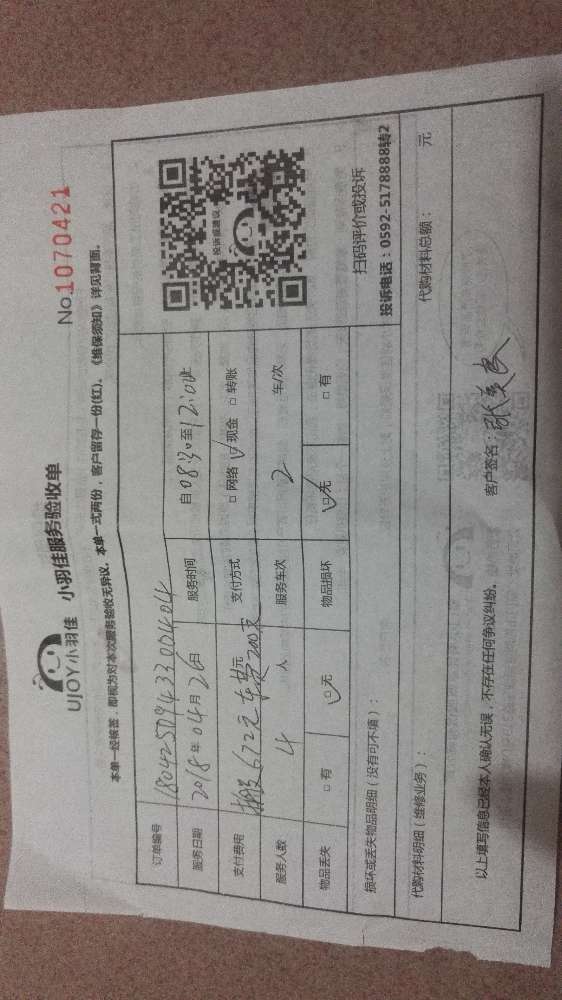 UJOY小羽佳 小羽佳服务验收单
No.1070421
本单一经核签，即视为对本次服务验收无异议。本单一式两份，客户留存一份(红)。《维保须知》详见背面。
订单编号 18042509433000404
服务日期 2018年04月26日 服务时间 自08:30至12:00止
支付费用 搬运672元 车费200元 元 支付方式 □网络 ☑现金 □转账
服务人数 4 人 服务车次 2 车/次
物品丢失 □有 ☑无 物品损坏 ☑无 □有
投诉或建议
扫码评价或投诉
投诉电话：0592-5178888转2
损坏或丢失物品明细（没有可不填）：
代购材料明细（维修业务）： 代购材料总额： 元
以上填写信息已经本人确认无误，不存在任何争议纠纷。 客户签名：